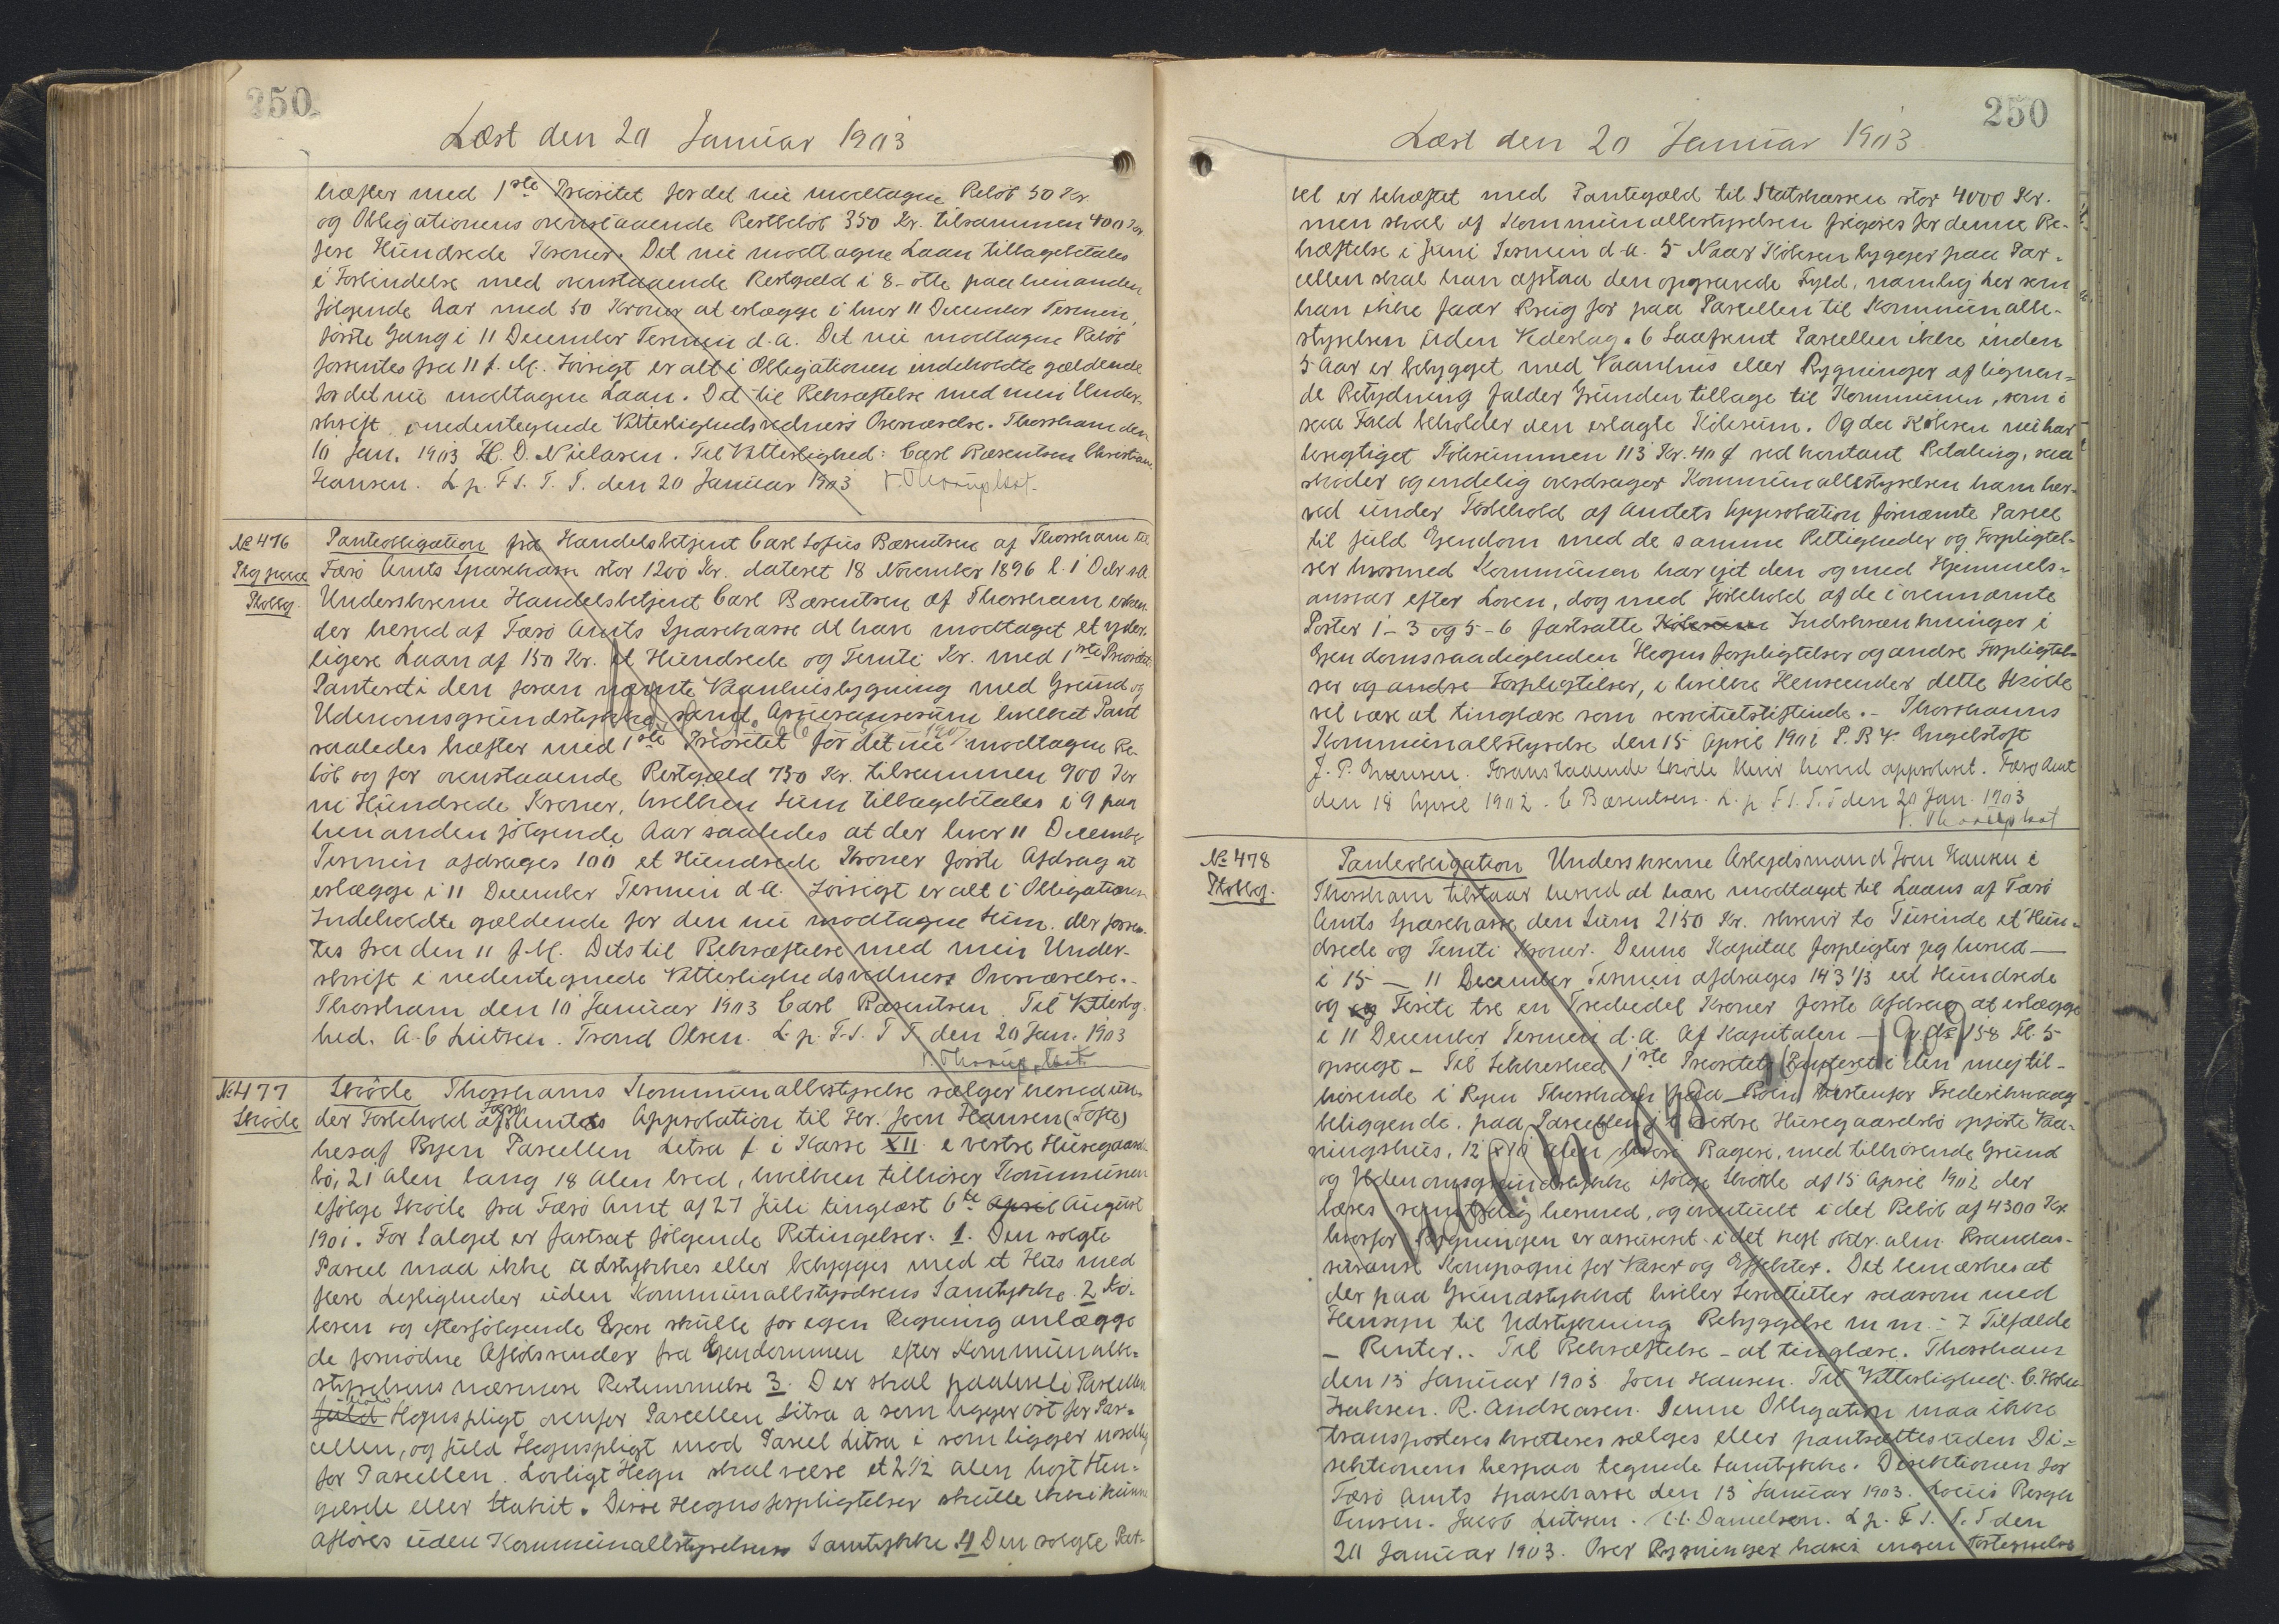 250
Læst den 20 Januar 1903
hæfter med 1ste Prioritet for det nu modtagne Beløb 50 Kr.
og Obligationens ovenstaaende Restbeløb 350 Kr. tilsammen 400 Kr.
fire Hundrede Kroner. Det nu modtagne Laan tilbagebetales
i Forbindelse med ovenstaaende Restgæld i 8 - otte paa hinanden
følgende Aar med 50 Kroner at erlægge i hver 11 December Termin,
første Gang i 11 December Termin d. A. Det nu modtagne Beløb
forrentes fra 11 f. M. Forøvrigt er alt i Obligationen indeholdte gældende
for det nu modtagne Laan. Det til Bekræftelse med min Under-
skrift i nedentegnede Vitterlighedsvidners Overværelse. Thorshavn den
10 Jan. 1903 H. D. Nielasen. Til Vitterlighed: Carl Bærentsen Christian
Hansen. L. p. F. S. T. T. den 20 Januar 1903
No 476
Pkg paa
Ptoblg.
Panteobligation fra Handelsbetjent Carl Lofus Bærentsen af Thorshavn til
Færø Amts Sparekasse stor 1200 Kr. dateret 18 November 1896 l. 1 Decbr s. A.
Underskrevne Handelsbetjent Carl Bærentsen af Thorshavn erken-
der herved af Færø Amts Sparekasse at have modtaget et yder-
ligere Laan af 150 Kr. et Hundrede og Femti Kr. med 1ste Prioritets
Panteret i den foran nævnte Vaanhusbygning med Grund og
Udenomsgrundstykke samt Assurancesum hvilket Pant
saaledes hæfter med 1ste Prioritet for det nu modtagne Be-
løb og for ovenstaaende Restgæld 750 Kr. tilsammen 900 Kr
ni Hundrede Kroner, hvilken Sum tilbagebetales i 9 paa
hinanden følgende Aar saaledes at der hver 11 December
Termin afdrages 100 et Hundrede Kroner første Afdrag at
erlægge i 11 December Termin d. A. Forøvrigt er alt i Obligationen
Indeholdte gældende for den nu modtagne Sum. der forren-
tes fra den 11 f. M. Dets til Bekræftelse med min Under-
skrift i nedentegnede Vitterlighedsvidners Overværelse. -
Thorshavn den 10 Januar 1903 Carl Bærentsen. Til Vitterlig-
hed. A. C. Lutzen. Trond Olsen. L. p. F. S. T. T. den 20 Jan. 1903
No 477
Skøde
Skøde Thorshavns Kommunalbestyrelse sælger herved un-
der Forbehold af Færø Amtets Approbation til Hr. Joen Hansen (Lofte)
heraf Byen Parcellen Litra f i Karse XII i vestre Husegaards
bø, 21 Alen lang 18 Alen bred, hvilken tilhører Kommunen
ifølge Skøde fra Færø Amt af 27 Juli tinglæst 6te April August
1901. For Salget er fastsat følgende Betingelser: 1. Den solgte
Parcel maa ikke udstykkes eller bebygges med et Hus med
flere Lejligheder uden Kommunalbestyrelsens Samtykke. 2 Kø-
beren og efterfølgende Ejere skulle for egen Regning anlægge
de fornødne Afløbsrender fra Ejendommen efter Kommunalbe-
styrelsens nærmere Bestemmelse 3. Der skal paahvile Parcellen
fuld halv Hegnspligt ovenfor Parcellen Litra a som ligger øst for Par-
cellen, og fuld Hegnspligt mod Parcel Litra i som ligger nordlig
for Parcellen. Lovligt Hegn skal være et 2 1/2 Alen højt Sten-
gærde eller Stakit. Disse Hegnsforpligtelser skulle ikke kunne
afløses uden Kommunalbestyrelsens Samtykke 4 Den solgte Par-
250
Læst den 20 Januar 1903
cel er behæftet med Pantegæld til Statskassen stor 4000 Kr.
men skal af Kommunalbestyrelsen frigøres for denne Be-
hæftelse i Juni Termin d. A. 5 Naar Køberen bygger paa Par-
cellen skal han afstaa den opgravede Fyld, nemlig her som
han ikke faar Brug for paa Parcellen til Kommunalbe-
styrelsen uden Vederlag. 6 Saafremt Parcellen ikke inden
5 Aar er bebygget med Vaanhus eller Bygninger af lignen-
de Betydning falder Grunden tilbage til Kommunen, som i
saa Fald beholder den erlagte Købesum. Og da Køberen nu har
berigtiget Købesummen 113 Kr. 40 Ø ved kontant Betaling, saa
skøder og endelig overdrager Kommunalbestyrelsen ham her-
ved under Forbehold af Amtets Approbation fornævnte Parcel
til fuld Ejendom med de samme Rettigheder og Forpligtel-
ser hvormed Kommunen har ejet den og med Hjemmels-
ansvar efter Loven, dog med Forbehold af de i ovennævnte
Poster 1 - 3 og 5 - 6 fastsatte Købesum Indskrænkninger i
Ejendomsraadigheden Hegnsforpligtelser og andre Forpligtel-
ser og andre Forpligtelser, i hvilke Henseender dette Skøde
vil være at tinglæse som servitutstiftende. - Thorshavns
Kommunalbestyrelse den 15 April 1902 P. B. V. Engelstoft
J. P. Evensen. Foranstaaende Skøde bliver herved approberet. Færø Amt
den 18 April 1902. C. Bærentsen. L. p. F. S. T. T den 20 Jan. 1903
No 478
Ptoblg.
Panteobligation Underskrevne Arbejdsmand Joen Hansen i
Thorshavn tilstaar herved at have modtaget til Laans af Færø
Amts Sparekasse den Sum 2150 Kr. skriver to Tusinde et Hun-
drede og Femti Kroner. Denne Kapital forpligter jeg herved -
i 15 - 11 December Termin afdrages 143 1/3 et Hundrede
og og Firti tre en Trediedel Kroner første Afdrag at erlægge
i 11 December Termin d. A. Af Kapitalen - 158 Fl. 5
opsagt - Til Sikkerhed 1ste Prioritets Panteret i den mig til-
hørende i Byen Thorshavn paa Boin vestenfor Frederiksvaag
beliggende, paa Parcellen f i vestre Husegaardsbø opførte Vaa-
ningshus, 12 x 10 Alen hvori Bageri, med tilhørende Grund
og Udenomsgrundstykke ifølge Skøde af 15 April 1902 der
læses samtidig hermed, og eventuelt i det Beløb af 4300 Kr.
hvorfor Bygningen er assureret i det kgl. oktr. alm. Brandas-
surance Kompagni for Varer og Effekter. Det bemærkes at
der paa Grundstykket hviler Servitutter saasom med
Hensyn til Udstykning Bebyggelse m. m. - I Tilfælde
- Renter. - Til Bekræftelse - at tinglæse. Thorshavn
den 13 Januar 1903 Joen Hansen. Til Vitterlighed. C. Holm
Isaksen. R. Andreasen. Denne Obligation maa ikke
transporteres kvitteres sælges eller pantsættes uden Di-
rektionens herpaa tegnede Samtykke. Direktionen for
Færø Amts Sparekasse den 13 Januar 1903. Louis Bergh
Jensen. Jacob Lutzen. Danielsen. L. p. F. S. T. T den
20 Januar 1903. Over Bygninger haves ingen Fortegnelse